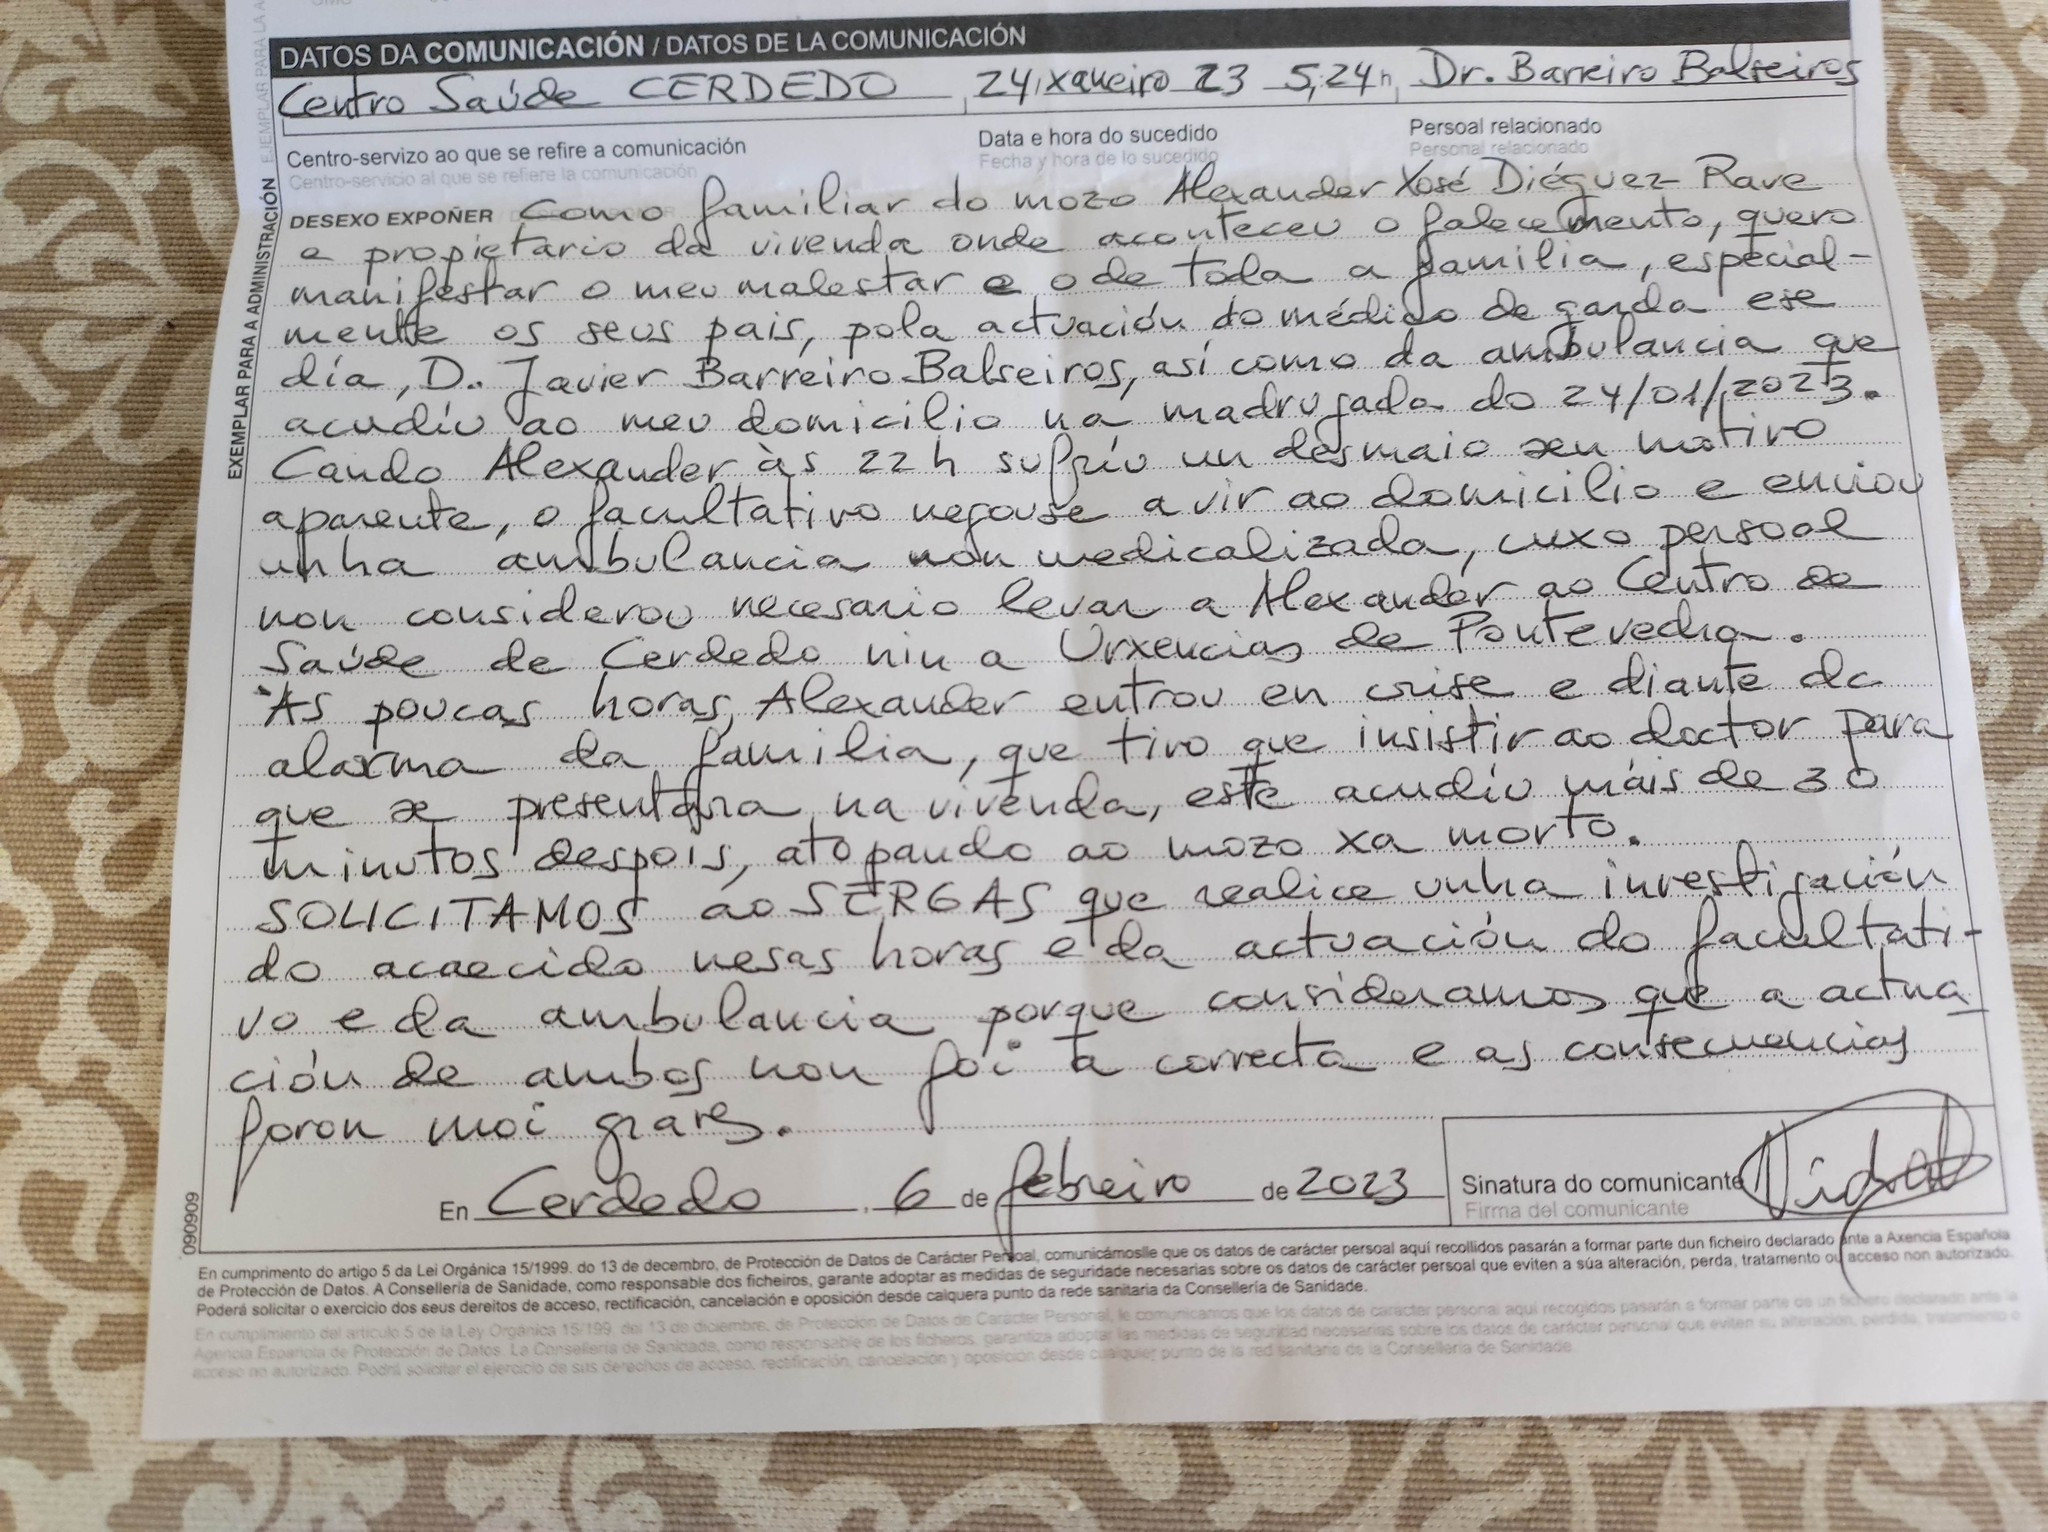 DATOS DA COMUNICACIÓN / DATOS DE LA COMUNICACIÓN
Centro Saúde CERDEDO, 24 xaneiro 23 5,24h, Dr. Barreiro Balseiros
Centro-servizo ao que se refire a comunicación Data e hora do sucedido Persoal relacionado
Centro-servicio al que se refiere la comunicación Fecha y hora de lo sucedido Personal relacionado
DESEXO EXPOÑER Como familiar do mozo Alexander Xosé Diéguez Rave
e propietario da vivenda onde aconteceu o falecemento, quero
manifestar o meu malestar e o de toda a familia, especial-
mente os seus pais, pola actuación do médico de garda ese
día, D. Javier Barreiro Balseiros, así como da ambulancia que
acudíu ao meu domicilio na madrugada do 24/01/2023.
Cando Alexander às 22 h sufríu un desmaio sen motivo
aparente, o facultativo negouse a vir ao domicilio e enviou
unha ambulancia non medicalizada, cuxo persoal
non considerou necesario levar a Alexander ao Centro de
Saúde de Cerdedo nin a Urxencias de Pontevedra.
Ás poucas horas, Alexander entrou en crise e diante da
alarma da familia, que tivo que insistir ao doctor para
que se presentara na vivenda, este acudíu máis de 30
minutos despois, atopando ao mozo xa morto.
SOLICITAMOS ao SERGAS que realice unha investigación
do acaecido nesas horas e da actuación do facultati-
vo e da ambulancia porque consideramos que a actua
ción de ambos non foi a correcta e as consecuencias
foron moi graves.
En Cerdedo, 6 de febreiro de 2023
Sinatura do comunicante Vidal
Firma del comunicante
EXEMPLAR PARA A ADMINISTRACIÓN EJEMPLAR PARA LA A
090909
En cumprimento do artigo 5 da Lei Orgánica 15/1999, do 13 de decembro, de Protección de Datos de Carácter Persoal, comunicámoslle que os datos de carácter persoal aquí recollidos pasarán a formar parte dun ficheiro declarado ante a Axencia Española
de Protección de Datos. A Consellería de Sanidade, como responsable dos ficheiros, garante adoptar as medidas de seguridade necesarias sobre os datos de carácter persoal que eviten a súa alteración, perda, tratamento ou acceso non autorizado.
Poderá solicitar o exercicio dos seus dereitos de acceso, rectificación, cancelación e oposición desde calquera punto da rede sanitaria da Consellería de Sanidade.
En cumplimiento del artículo 5 de la Ley Orgánica 15/199, del 13 de diciembre, de Protección de Datos de Carácter Personal, le comunicamos que los datos de carácter personal aquí recogidos pasarán a formar parte de un fichero declarado ante la
Agencia Española de Protección de Datos. La Consellería de Sanidade, como responsable de los ficheros, garantiza adoptar las medidas de seguridad necesarias sobre los datos de carácter personal que eviten su alteración, perdida, tratamiento o
acceso no autorizado. Podrá solicitar el ejercicio de sus derechos de acceso, rectificación, cancelación y oposición desde cualquier punto de la red sanitaria de la Consellería de Sanidade.